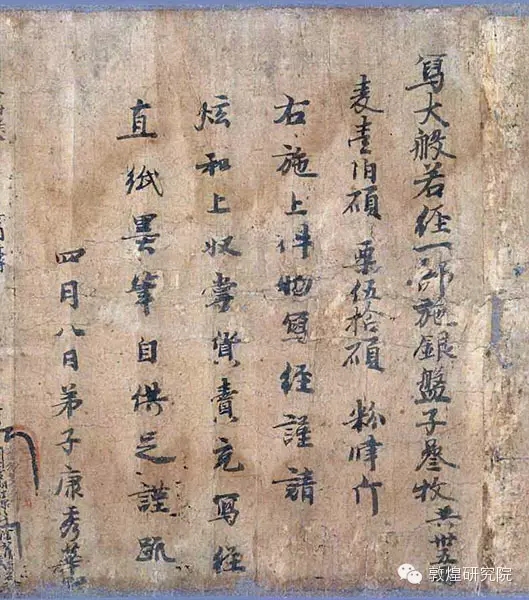 寫大般若經一部施銀盤子叄枚共卅五
麦壹伯碩 粟伍拾碩 粉肆斤
右施上件物寫經謹請
炫和上收掌貨賣充寫經
直紙墨筆自供足謹疏
四月八日弟子康秀華
敦煌研究院